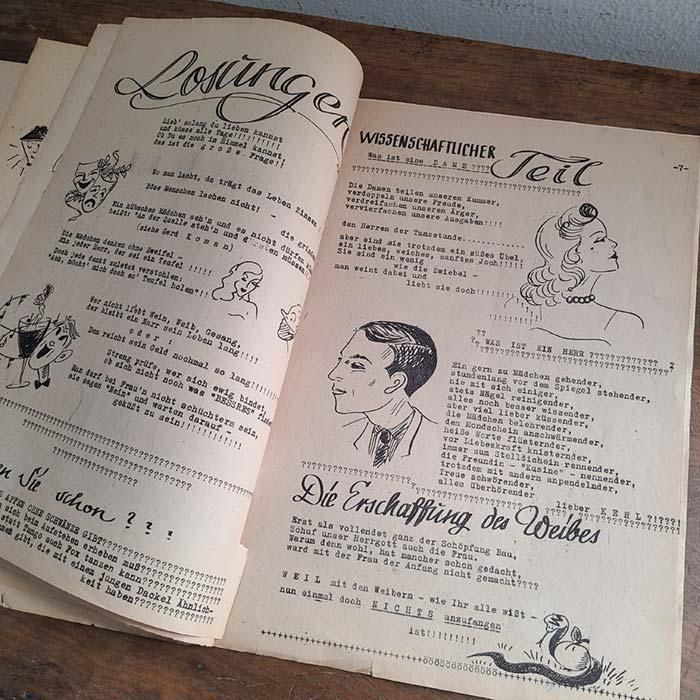 Losungen
Lieb' solang du lieben kannst
und küsse alle Tage!!!!!!!!!!
Ob Du es noch im Himmel kannst
das ist die g r o ß e Frage!!
Wo man lacht, da trägt das Leben Zinsen
Böse Menschen lachen nicht! -
die grinsen
Ein hübsches Mädchen seh'n und es nicht dürfen
heißt: "An der Quelle steh'n und dürsten müssen
(siehe Gerd K o m a n)
Die Mädchen denken ohne Zweifel -
Ein jeder Herr, der sei ein Teufel !!!!!
Doch jede denkt zuletzt verstohlen:
"Ach, möcht' mich doch so' Teufel holen"!!
Wer nicht liebt Wein, Weib, Gesang,
der bleibt ein Narr sein Leben lang!!!!
o d e r :
Dem reicht sein Geld nochmal so lang!!!!!
Streng prüfe, wer sich ewig bindet,
ob sich nicht noch was "BESSRES" findet
Man darf bei Frau'n nicht schüchtern sein,
sie sagen "Nein" und warten darauf -
geküßt zu sein!!!!!!!!!!!
en Sie schon ? ? ?
S AFFEN OHNE SCHWÄNZE GIBT????????????
sich beim Aufstehen erheben muß????????
statt Tango auch Fox tanzen kann???????
noch gibt, die mit einem jungen Dackel Ähnlich-
keit haben???????????????
-7-
WISSENSCHAFTLICHER Teil
Was ist eine D A M E ????
??????????????????????????????????????
Die Damen teilen unseren Kummer,
verdoppeln unsere Freude,
verdreifachen unseren Ärger,
vervierfachen unsere Ausgaben!!!!
den Herren der Tanzstunde............
aber sind sie trotzdem ein süßes Übel,
ein liebes, weiches, sanftes Joch!!!!!
Sie sind ein wenig
wie die Zwiebel -
man weint dabei und
liebt sie doch!!!!!!!!!
??
?? WAS IST EIN HERR ???????????? ?
Ein gern zu Mädchen gehender,
stundenlang vor dem Spiegel stehender,
nie mit sich einiger,
stets Nägel reinigender,
alles noch besser wissender,
aber viel lieber küssender,
die Mädchen belehrender,
den Mondschein anschwärmender,
heiße Worte flüsternder,
vor Liebeskraft knisternder,
immer zum Stelldichein rennender,
die Freundin - "Kusine" - nennender,
trotzdem mit andern anpendelnder,
Treue schwörender,
alles Überhörender
lieber K E R L ?!????!
Die Erschaffung des Weibes
Erst als vollendet ganz der Schöpfung Bau,
Schuf unser Herrgott auch die Frau.
Warum denn wohl, hat mancher schon gedacht,
ward mit der Frau der Anfang nicht gemacht????
W E I L mit den Weibern - wie Ihr alle wißt --
nun einmal doch N I C H T S anzufangen
ist!!!!!!!!!